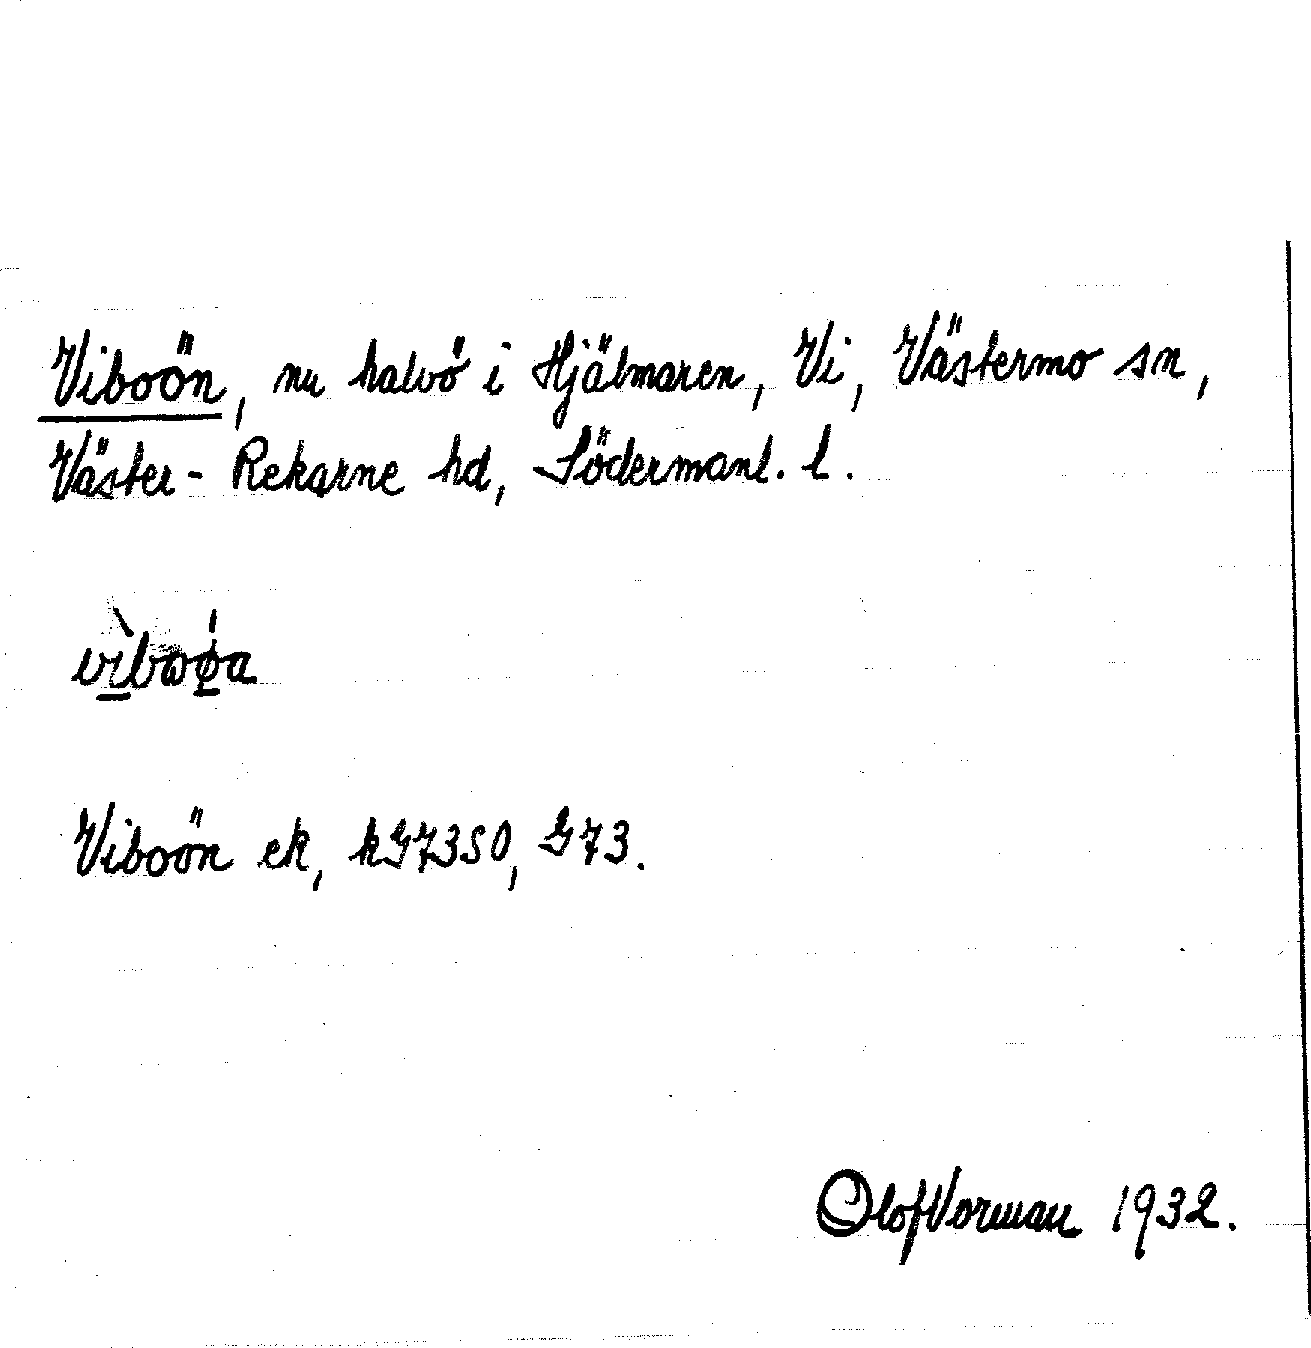 Viboön, nu halvö i Hjälmaren, Vi, Västermo sn,
Väster-Rekarne hd, Södermanl. l.
Viboön ek, kG7350, G73.
Olof Vorman 1932.